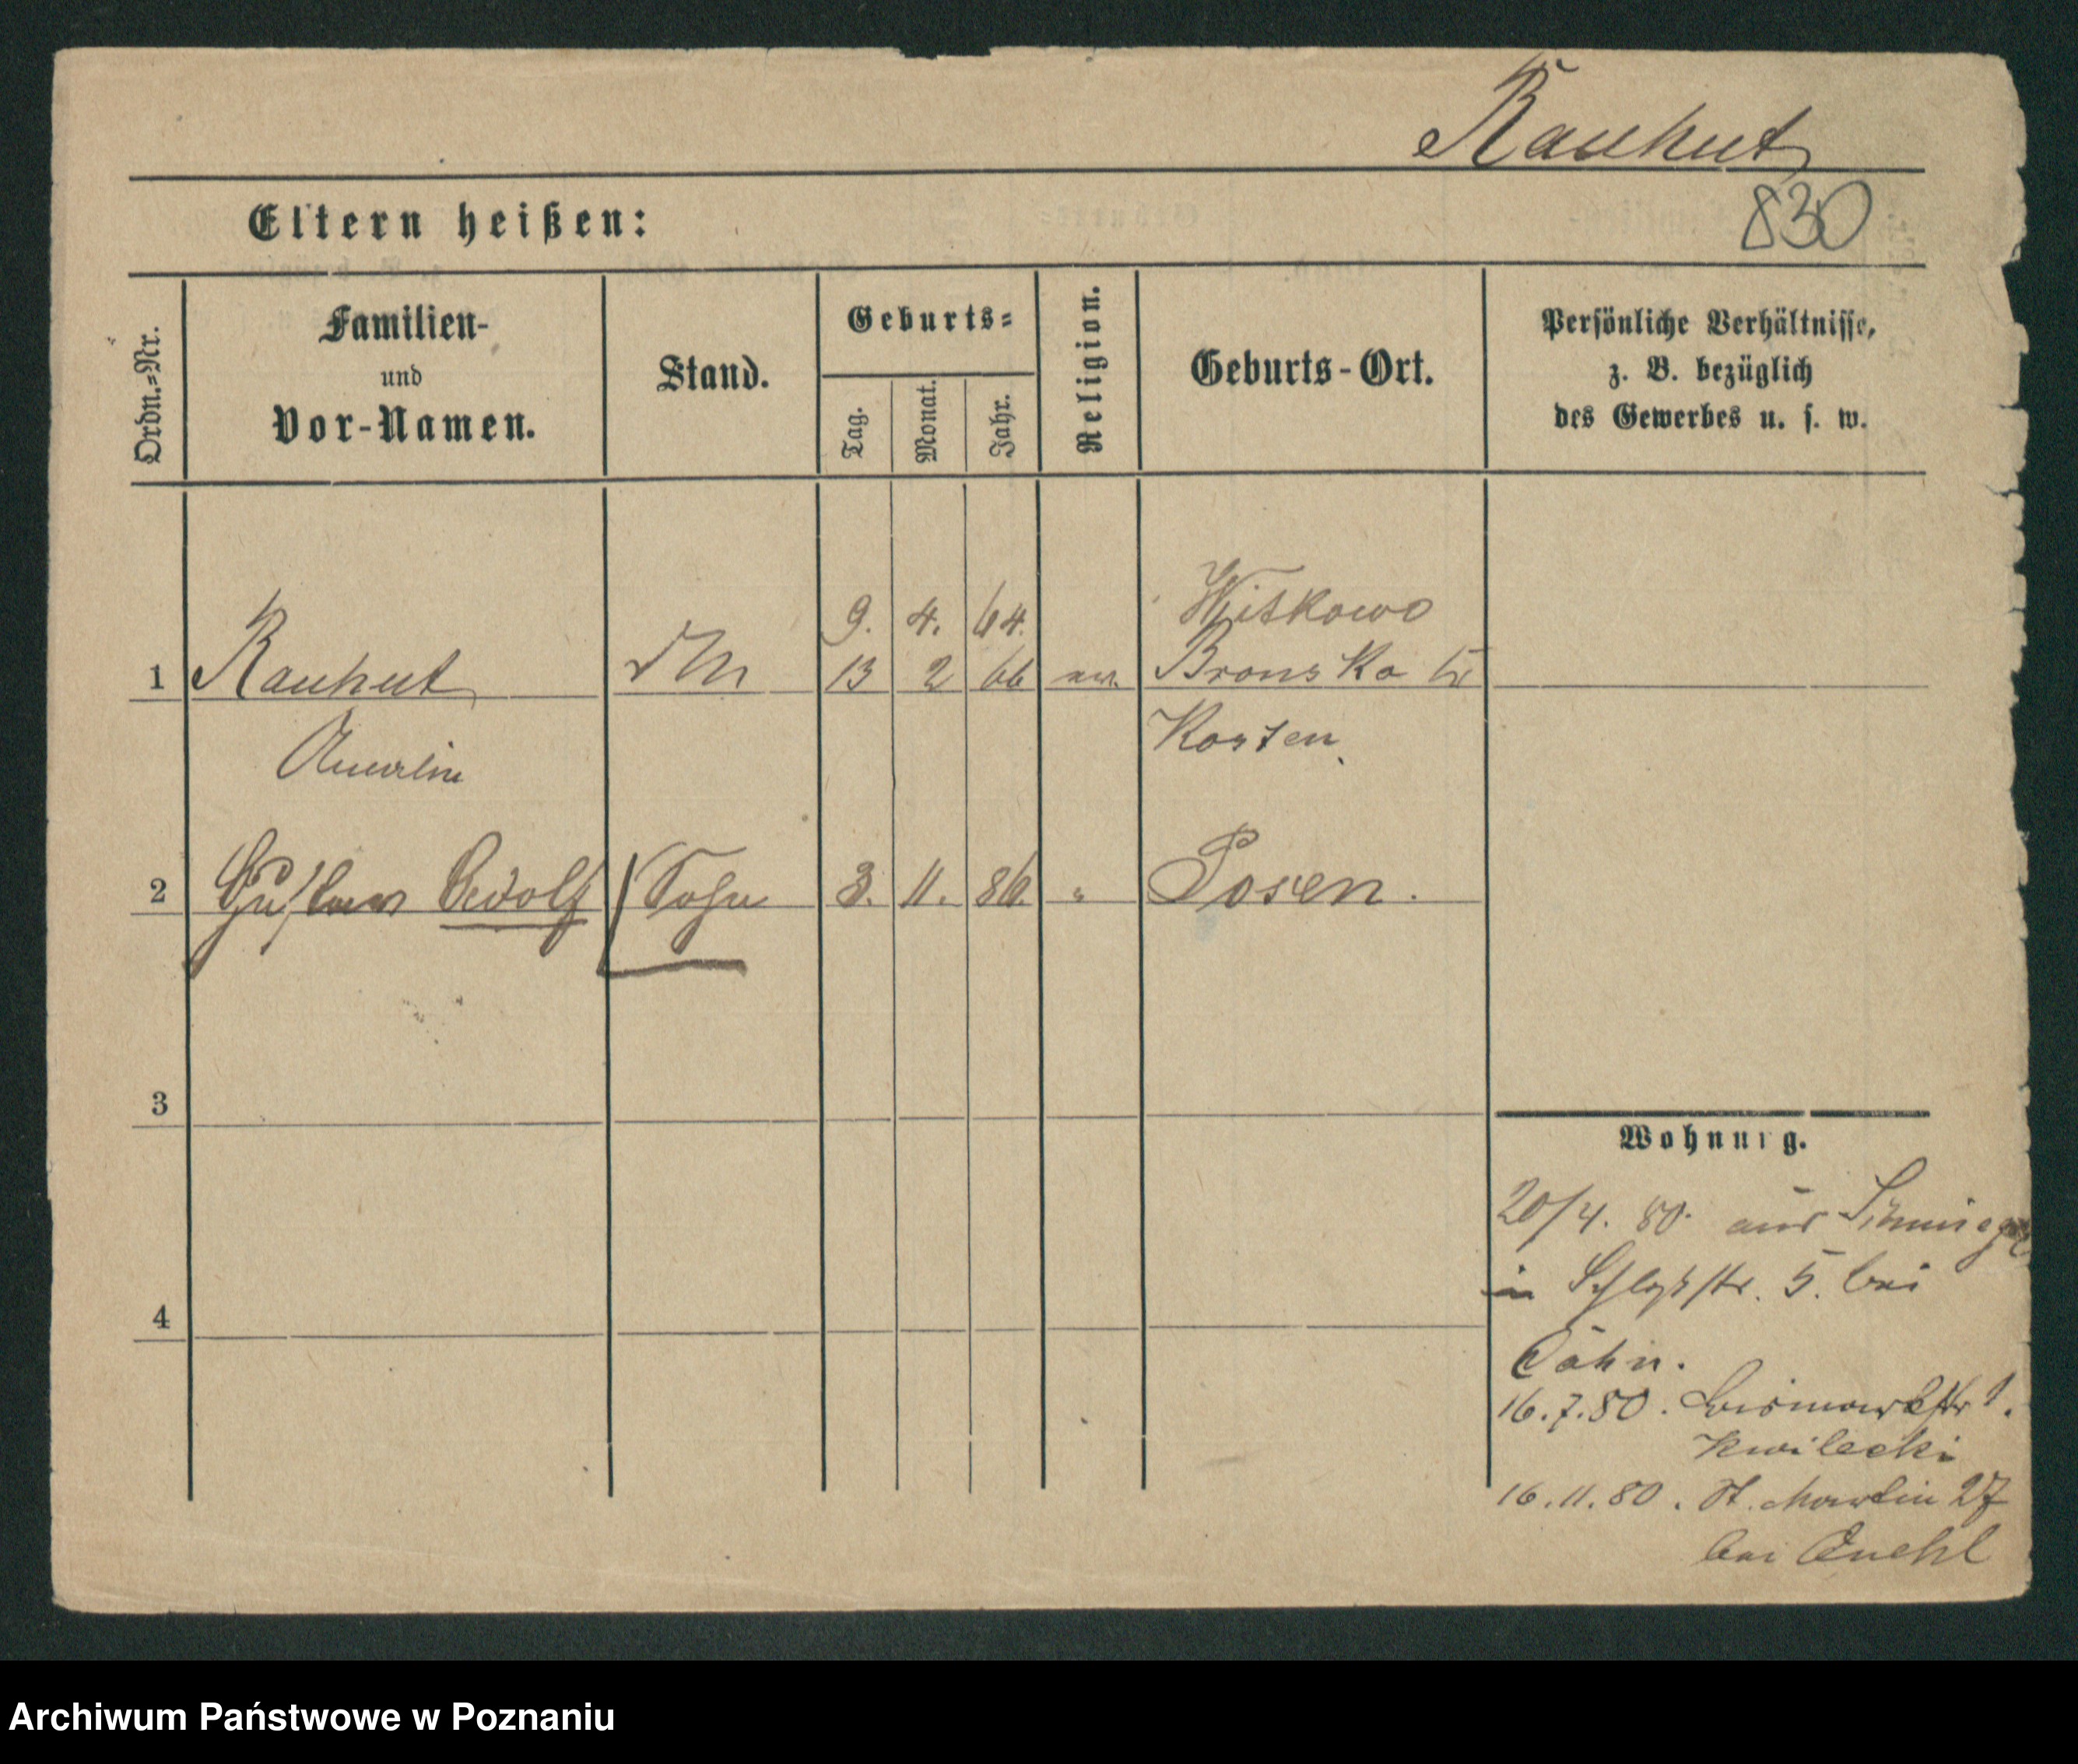 Rauhut
830
Eltern heißen:
Ordn.=Nr.
Familien-
und
Vor-Namen.
Stand.
Geburts=
Tag.
Monat.
Jahr.
Religion.
Geburts-Ort.
Persönliche Verhältnisse,
z. B. bezüglich
des Gewerbes u. s. w.
9. 4. 64. Witkowo
1 Rauhut 13 2 66 Bronsko
Kosten
2 Gustav Adolf Sohn 3. 11. 86. " Posen.
3
Wohnung.
20/4. 80. aus Schmiegel
4
in 5. bei
Dähn.
16.7.80. Bismarckstr 1.
Kwilecki
16.11.80. St. Martin 27
bei
Archiwum Państwowe w Poznaniu